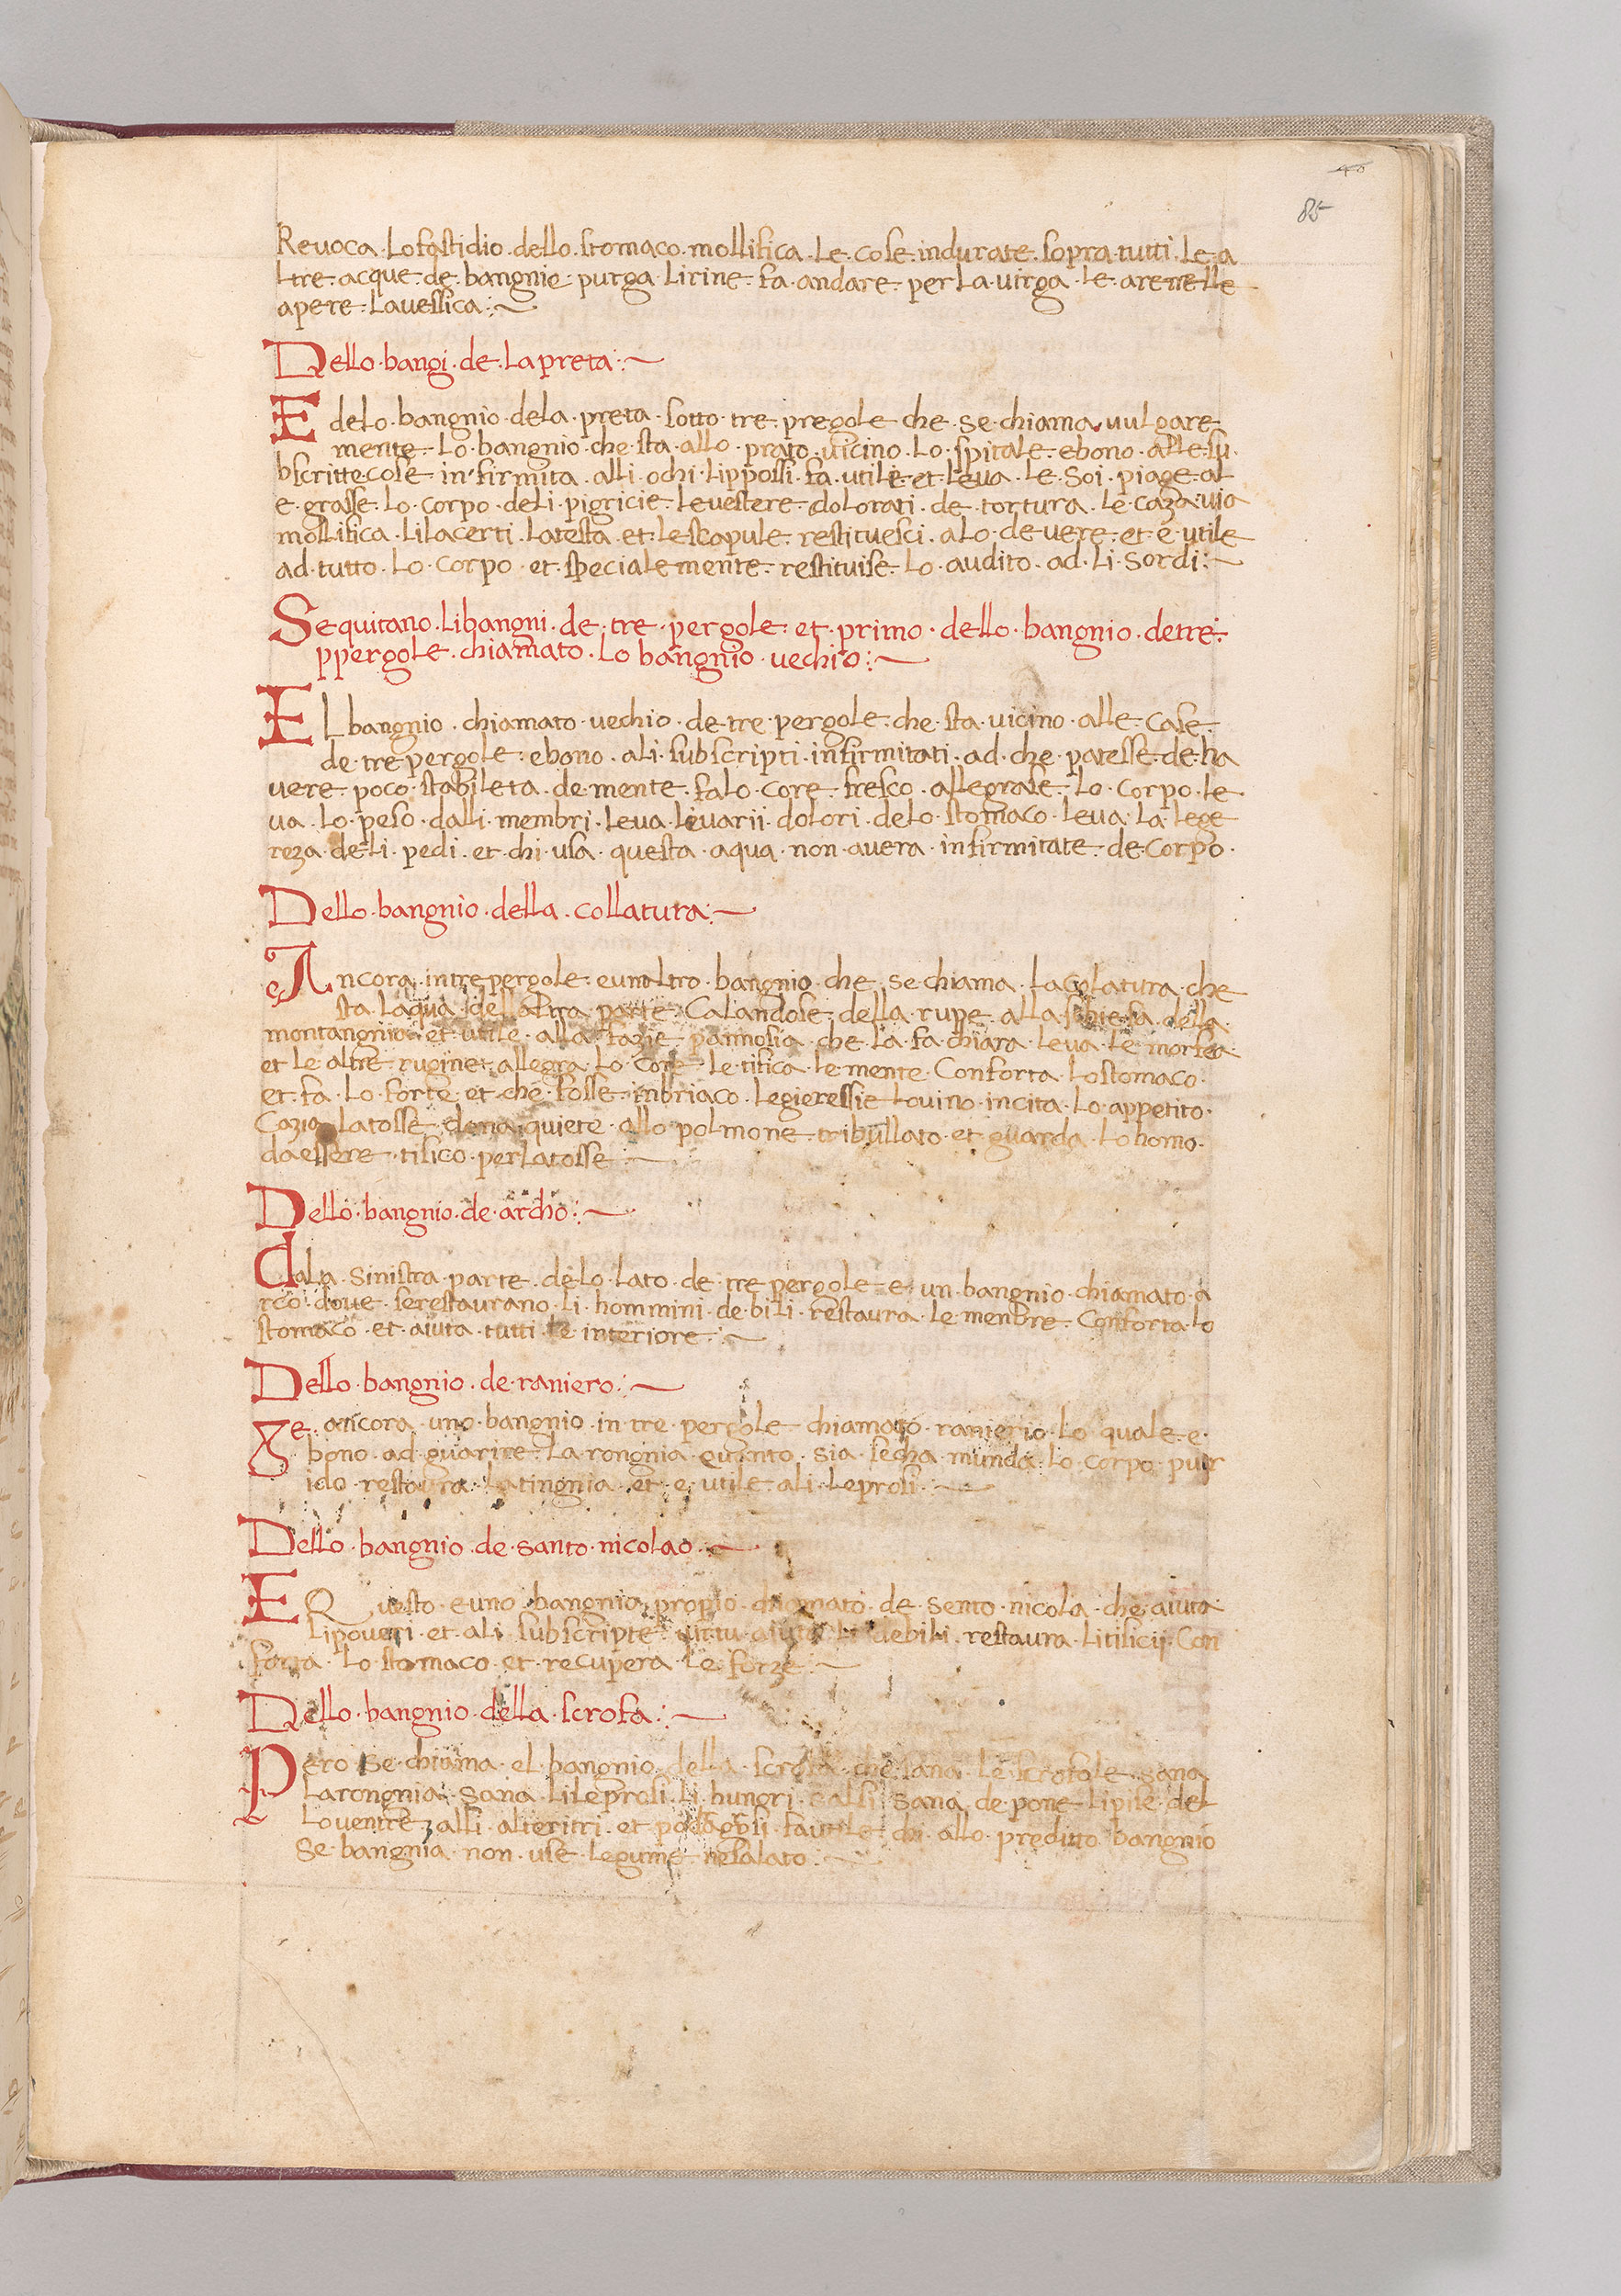 85
Revoca · Lo fastidio · dello · stomaco · mollifica · Le · cose · indurate · sopra · tutti · Le · a
Ltre · acque · de · bangnie · purga · Lirine · fa · andare · per La · virga · Le · arenelle
apere · La vessica :~
Dello · bangi · de · La preta :~
E delo · bangnio · dela · preta · sotto · tre · pregole che · se · chiama · vulgare
mente · Lo · bangnio · che · sta · allo · prato · vicino · Lo · spitale · ebono · alle · su ·
bscritte · cose in firmita · alli · ochi · Lippossi · fa · utile · et · Leva · Le · Soi · piage · al
e · grasse · Lo · corpo · deli · pigricie · Levestere · dolorati · de · tortura · Le · caza · via
mollifica · Li lacerti · La testa · et · Lescapule · restituesci · aLo · devere · et · e · utile
ad · tutto · Lo · corpo · et · speciale mente · restituise · Lo · audito · ad · Li · Sordi :~
Sequitano · Li bangni · de · tre · pergole · et · primo · dello · bangnio · detre ·
ppergole · chiamato · Lo bangnio · vechio :~
EL bangnio · chiamato · vechio · de · tre · pergole · che · sta · vicino · alle · Case ·
de · tre pergole · ebono · ali · subscripti · infirmitati · ad · che · patesse · de · ha
vere · poco · stabileta · de · mente · fa Lo · core · fresco · allegrase · Lo · corpo · Le
va · Lo · peso · dalli · membri · Leva · Levarii · dolori · deLo · stomaco · Leva · La · Lege
reza · deLi · pedi · et · chi · usa · questa · aqua · non · avera · infirmitate · de · Corpo ·
Dello · bangnio · della · collatura :~
Ancora · in tre pergole · eunaltro · bangnio · che · se · chiama · La colatura · che
sta · Laqua · dell altra parte · Calandose · della · rupe · alla schiesa · della
montangnia · et · utile · alla · fazie · pannosia · che · La · fa · chiara · Leva · Le · morfea ·
et · Le · altre · rugine · allegra · Lo · Core · Letifica · Le mente · Conforta · Lo stomaco ·
et · fa · Lo · forte · et · che · fosse · inbriaco · Legieressie Lo vino · incita · Lo · appetito ·
Cazia · La tosse · dona · quiete · allo · polmone · tribullato · et · guarda · Lo homo ·
da essere · tisico · per La tosse :~
Dello · bangnio · de · archo :~
Dala · Sinistra · parte · deLo · Lato · de · tre pergole · e · un · bangnio · chiamato · a
rco · dove · se restaurano · Li · hommini · debili · restaura · Le · menbre · Conforta · Lo
stomaco · et · aiuta · tutti · Le interiore :~
Dello · bangnio · de · raniero :~
e · ancora · uno · bangnio · in · tre · pergole chiamato · ranierio · Lo · quale · e ·
bono · ad · guarire · La rongnia · quanto · sia · secha · munda · Lo · corpo · putr
ido · restaura · La tingnia · et · e · utile · ali · Leprosi :~
Dello · bangnio · de · santo · nicolao :~
E Questo · euno · bangnio · propio · chiamato · de · sento · nicola · che aiuta ·
Lipoveri · et · ali · subscripte · virtu · aiuta · Li debili · restaura · Litisicij · Con
forta · Lo stomaco · et · recupera · Le · forze :~
Dello · bangnio · della · scrofa :~
Pero · Se · chiama · el · bangnio · della · scrofa · che sana · Le scrofole · sana
La rongnia · Sana · Lileprosi · Li · hungri · salsi · sana · de pone · Lipise · del
Lo ventre · alli · alteritri · et · podagrosi · fa utile · chi · allo · preditto bangnio
Se · bangnia · non · use · Legume · ne salato :~